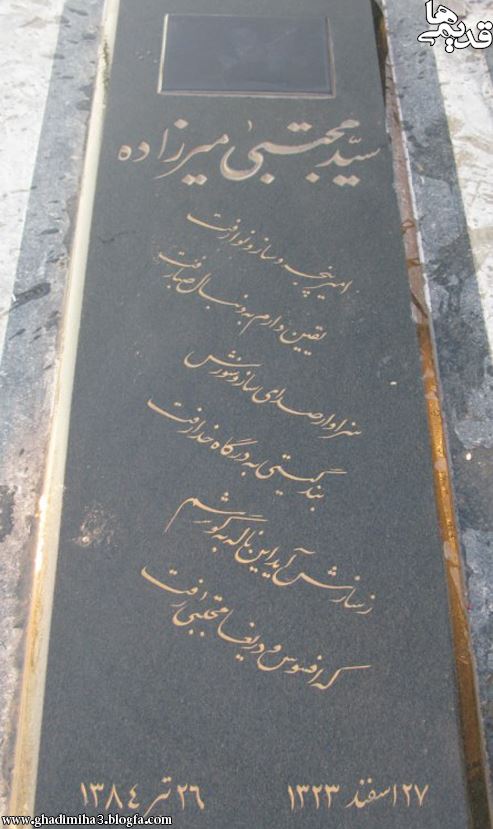 قدیمی‌ها
سیّد مجتبیٰ میرزاده
امیر پنجه و ساز و نوا رفت
یقین دارم به دنبال صبا رفت
سزاوار صدای ساز و سوزش
به درگاه خدا رفت
ز سازش آید این ناله به گوشم
که افسوس و دریغا مجتبی رفت
۲۷ اسفند ۱۳۲۳
۲۶ تیر ۱۳۸۴
www.ghadimiha3.blogfa.com